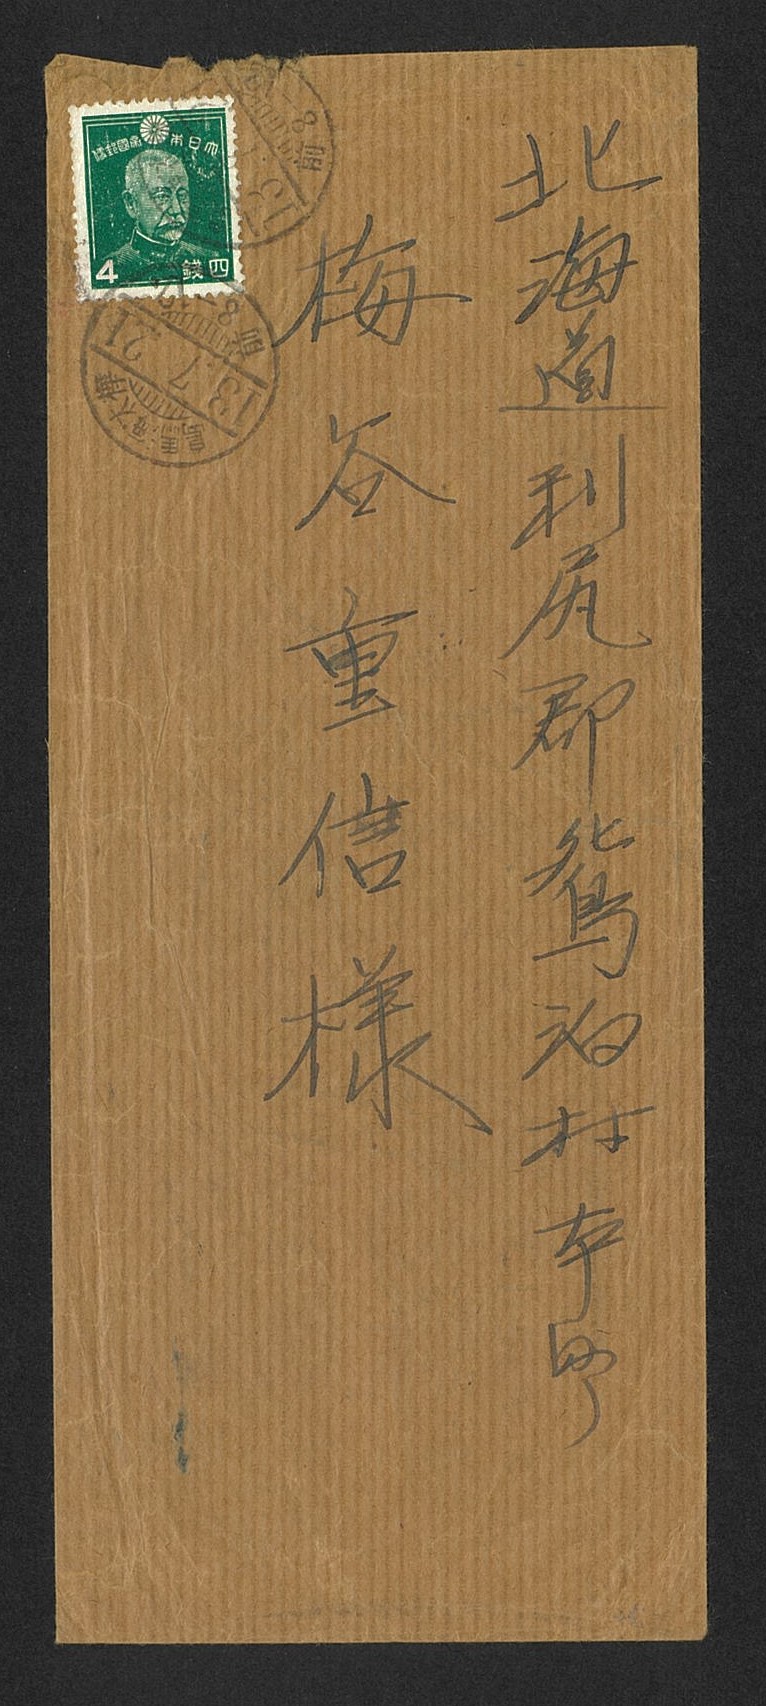 北海道利尻郡鴛泊村本町
梅谷重信様
大日本帝國郵便
4 銭四
前 8
13.7
13.7.21
前 8